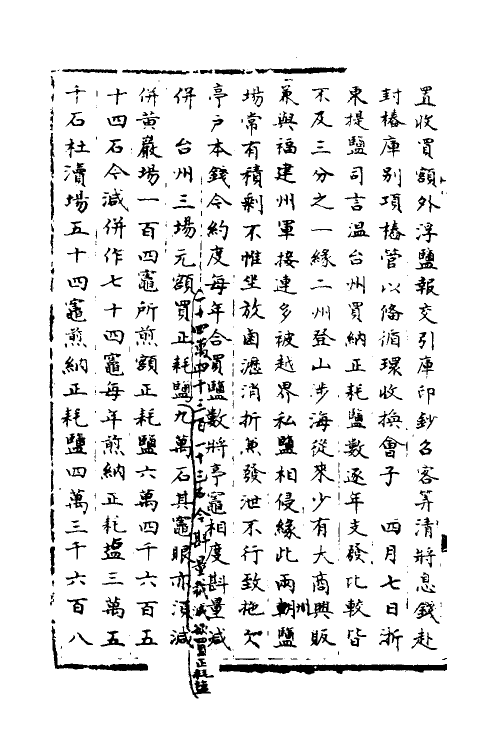 置收買額外浮鹽報交引庫印鈔召客筭清將息錢赴
封樁庫別項樁管以俻循環收換會子　四月七日浙
東提鹽司言溫台州買納正耗鹽數逐年支發比較皆
不及三分之一緣二州登山涉海從來少有大商興販
兼與福建州軍接連多被越界私鹽相侵緣此兩州鹽
場常有積剩不惟坐放鹵瀝消折兼發泄不行致拖欠
亭户本錢今約度每年合買鹽數將亭竈相度斟量減
併　台州三場元額買正耗鹽九萬石其竈眼亦須減
二十四萬四千三百一十三石今斟量裁減欲買正耗鹽
併黄巖場一百四竈所煎額正耗鹽六萬四千六百五
十四石今減併作七十四竈每年煎納正耗塩三萬五
千石杜瀆場五十四竈煎納正耗鹽四萬三千六百八